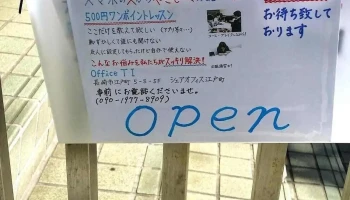 500円ワンポイントレッスン
ここだけを教えて欲しい (アプリ等…)
恥ずかしくて誰にも聞けない
友人に設定してもらったけど自分で使えない
こんなお悩みを私たちがスッキリ解決！
Office TI
長崎市江戸町 5-3-8F シェアオフィス江戸町
事前にお電話くださいませ。
(090-1977-8909)
お待ち致して
おります
open